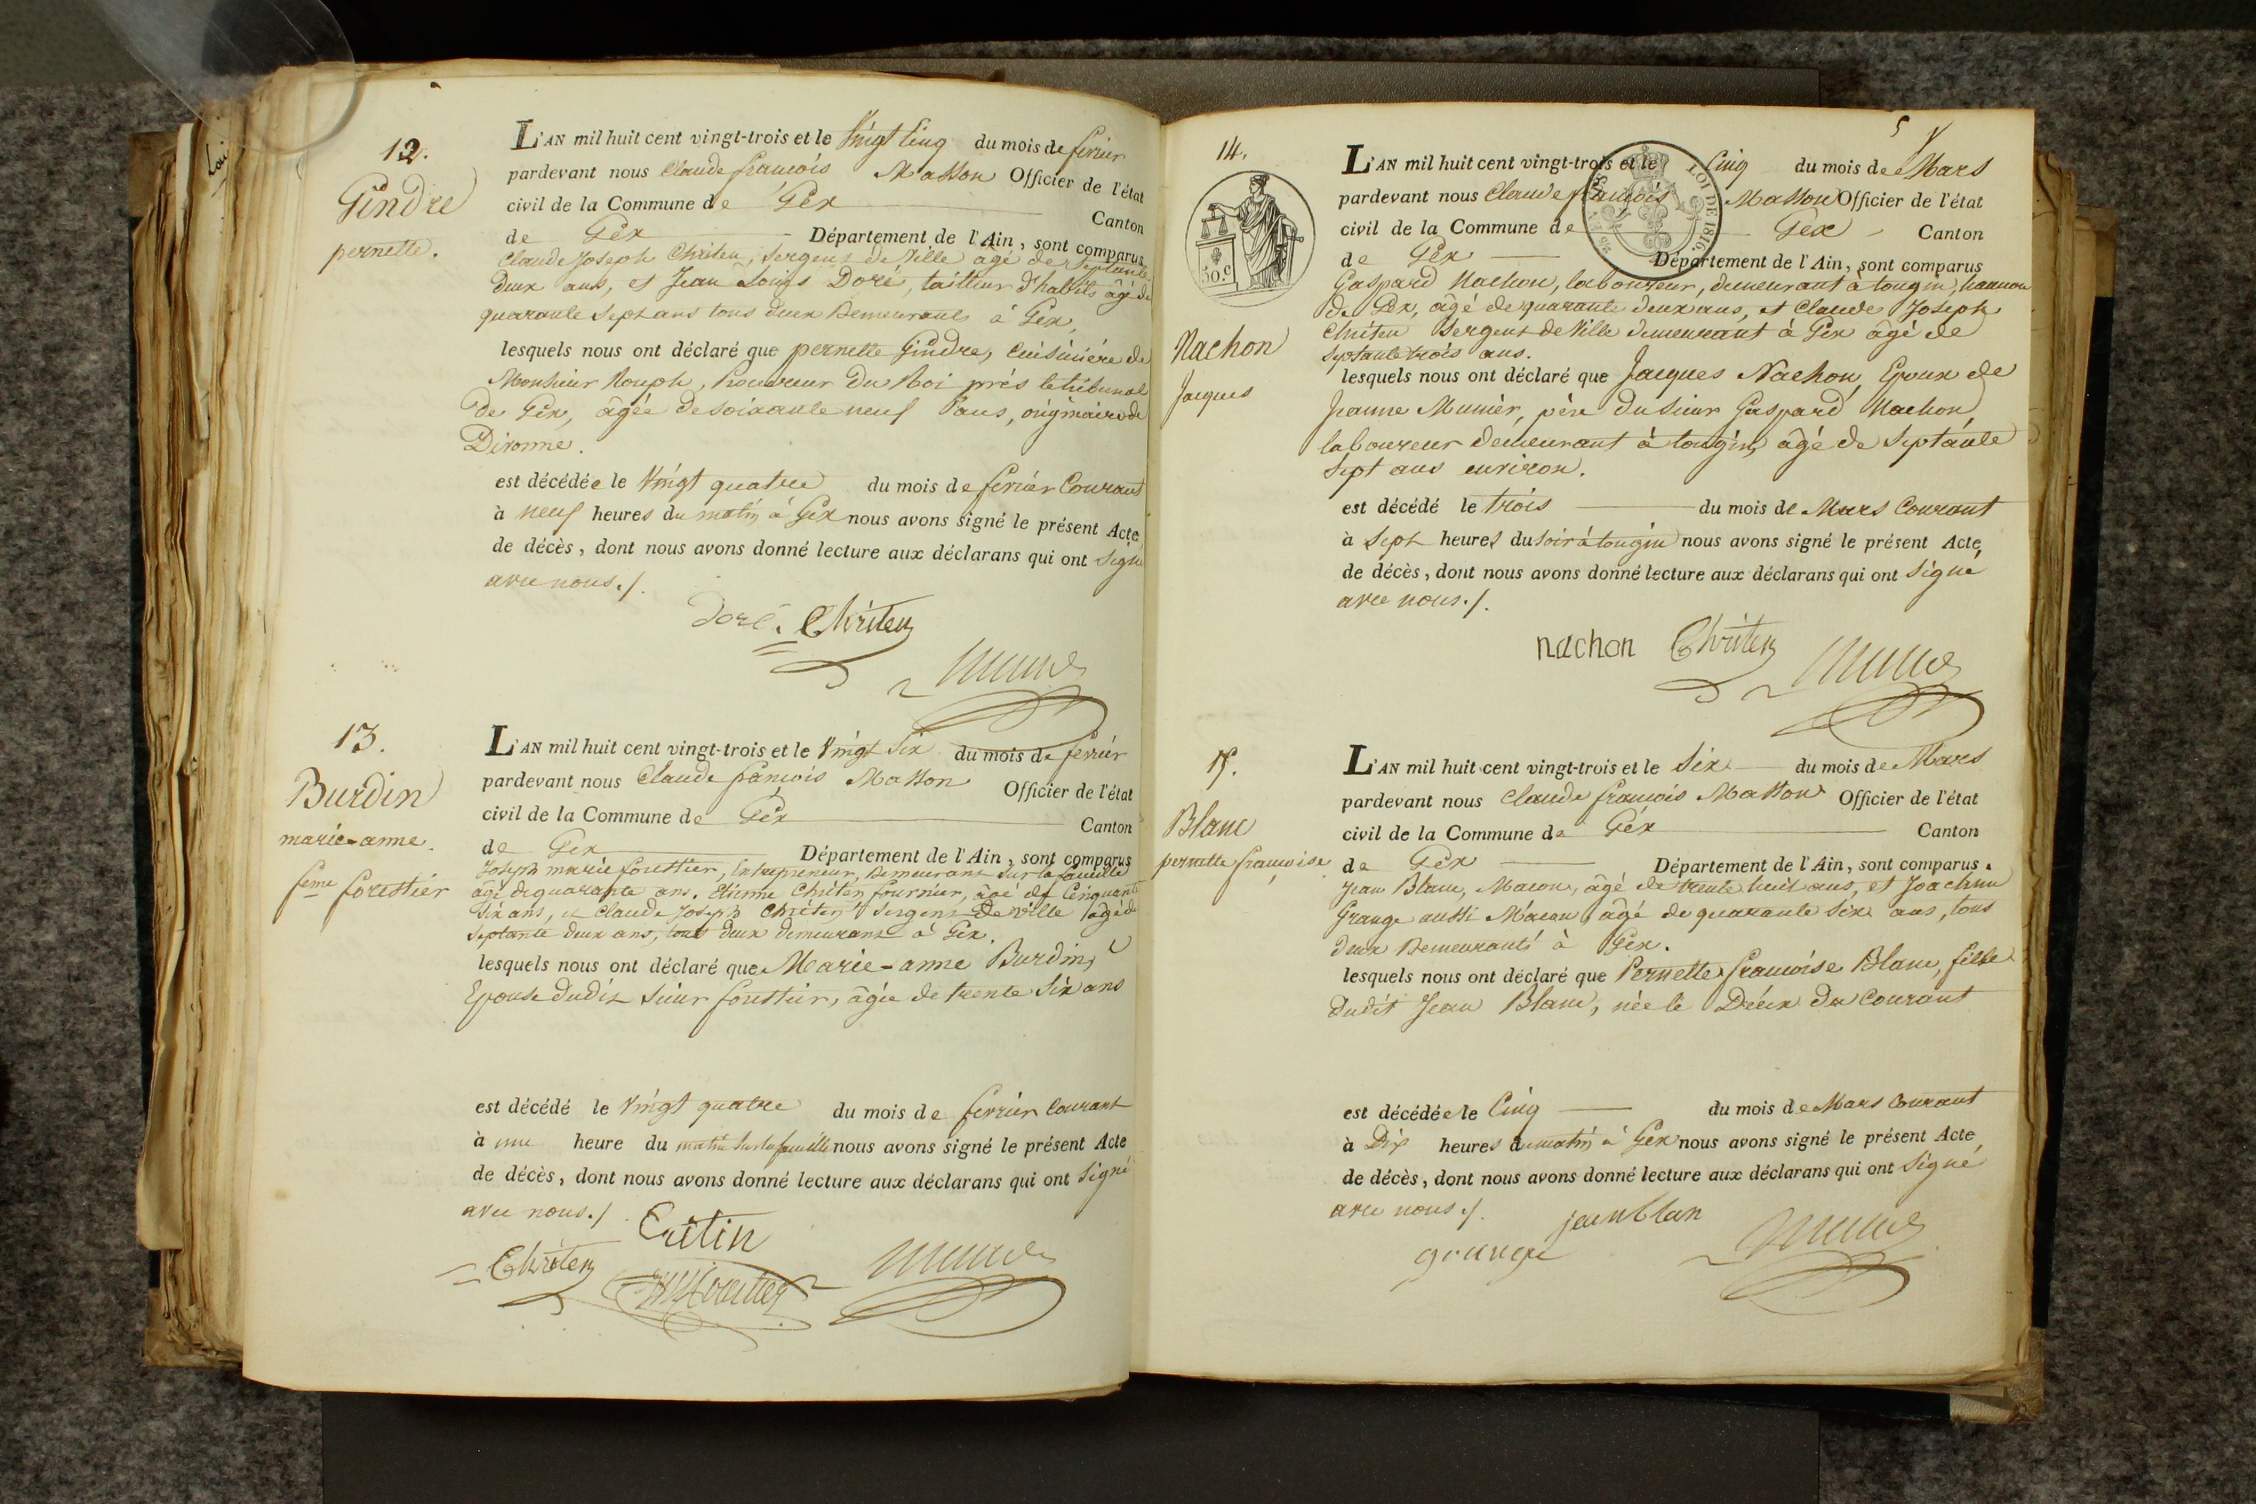 12.
Gindre
pernette.
L'AN mil huit cent vingt-trois et le Vingt Cinq du mois de fevrier
pardevant nous Claude françois Masson Officier de l'état
civil de la Commune de Gex Canton
de Gex Département de l'Ain, sont comparus
Claude Joseph Chriten, Sergent de Ville âgé de Septante
deux ans, et Jean Louis Doré, tailleur d'habits âgé de
quarante Sept ans tous deux Demeurants à Gex,
lesquels nous ont déclaré que pernette Gindre, Cuisinière de
Monsieur Rouph, Procureur du Roi près le tribunal
de Gex, âgée de soixante neuf ans, originaire de
Divonne.
est décédée le Vingt quatre du mois de fevrier Courant
à neuf heures du matin à Gex nous avons signé le présent Acte
de décès, dont nous avons donné lecture aux déclarans qui ont Signé
avec nous./.
Doré. Chriten
13.
Burdin
marie-anne.
feme forestier
L'AN mil huit cent vingt-trois et le Vingt Six du mois de fevrier
pardevant nous Claude françois Masson Officier de l'état
civil de la Commune de Gex Canton
de Gex Département de l'Ain, sont comparus
Joseph marie forestier, Entrepreneur, Demeurant Sur la faucille
âgé de quarante ans. Etienne Chriten fournier, âgé de Cinquante
Six ans, et Claude Joseph Chriten Sergent de ville âgé de
Septante deux ans, tous deux demeurant à Gex.
lesquels nous ont déclaré que Marie-anne Burdin,
Epouse dudit Sieur forestier, âgée de trente Six ans
est décédé le Vingt quatre du mois de fevrier Courant
à une heure du matin Sur la faucille nous avons signé le présent Acte
de décès, dont nous avons donné lecture aux déclarans qui ont Signé
avec nous./.
Critin
Chriten
14.
50.c
LOI DE 1816.
5
Nachon
Jacques
L'AN mil huit cent vingt-trois et le Cinq du mois de Mars
pardevant nous Claude françois Masson Officier de l'état
civil de la Commune de Gex Canton
de Gex Département de l'Ain, sont comparus
Gaspard Nachon, laboureur, demeurant à tougin, hameau
de Gex, âgé de quarante deux ans, et Claude Joseph
Chriten Sergent de Ville demeurant à Gex âgé de
Septante trois ans.
lesquels nous ont déclaré que Jacques Nachon, Epoux de
Jeanne Munier, père du Sieur Gaspard Nachon,
laboureur demeurant à tougin, âgé de Septante
Sept ans environ.
est décédé le trois du mois de Mars Courant
à Sept heures du Soir à tougin nous avons signé le présent Acte,
de décès, dont nous avons donné lecture aux déclarans qui ont Signé
avec nous./.
nachon Chriten
15.
Blanc
pernette françoise.
L'AN mil huit cent vingt-trois et le Six du mois de Mars
pardevant nous Claude françois Masson Officier de l'état
civil de la Commune de Gex Canton
de Gex Département de l'Ain, sont comparus.
Jean Blanc, Macon, âgé de trente huit ans, et Joachim
Grange aussi Macon, âgé de quarante Six ans, tous
deux Demeurants à Gex.
lesquels nous ont déclaré que Pernette françoise Blanc, fille
dudit Jean Blanc, née le Deux du Courant
est décédée le Cinq du mois de Mars Courant
à Dix heures du matin à Gex nous avons signé le présent Acte,
de décès, dont nous avons donné lecture aux déclarans qui ont Signé
avec nous./.
jean blan
grange